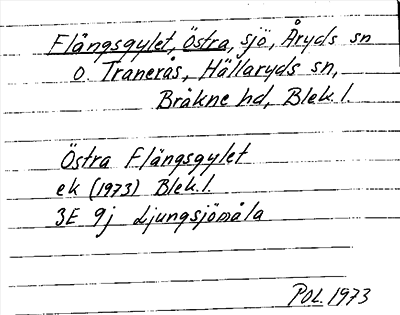 Flängsgylet, Östra, sjö, Åryds sn
o. Tranerås, Hällaryds sn,
Bräkne hd, Blek. l.
Östra Flängsgylet
ek (1973) Blek. l.
3E 9j Ljungsjömåla
POL 1973